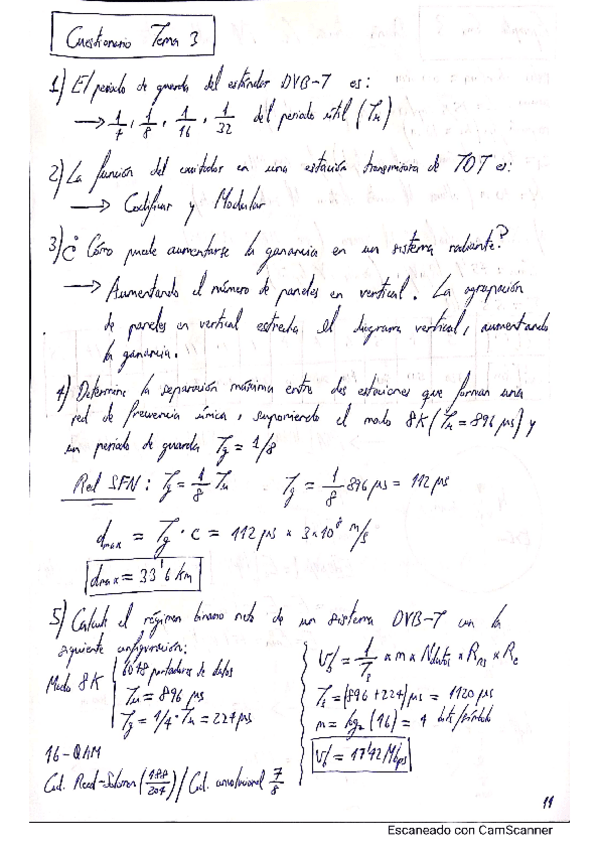 Cuestionario Tema 3
1) El periodo de guarda del estándar DVB-T es:
→ 1/4, 1/8, 1/16, 1/32 del periodo útil (Tu)
2) La función del excitador en una estación transmisora de TDT es:
→ Codificar y Modular
3) ¿Cómo puede aumentarse la ganancia en un sistema radiante?
→ Aumentando el número de paneles en vertical. La agrupación
de paneles en vertical estrecha el diagrama vertical, aumentando
la ganancia.
4) Determine la separación máxima entre dos estaciones que forman una
red de frecuencia única, suponiendo el modo 8K (Tu = 896 µs) y
un periodo de guarda Tg = 1/8
Red SFN: Tg = 1/8 Tu Tg = 1/8 896 µs = 112 µs
dmax = Tg · c = 112 µs × 3×10⁸ m/s
dmax = 33'6 Km
5) Calcule el régimen binario neto de un sistema DVB-T con la
siguiente configuración:
Modo 8K
6048 portadoras de datos
Tu = 896 µs
Tg = 1/4 · Tu = 224 µs
16-QAM
Cod. Reed-Solomon (188/204) / Cod. convolucional 7/8
Vb = 1/Ts × m × Ndatos × Rrs × Rc
Ts = (896 + 224) µs = 1120 µs
m = log₂ (16) = 4 bits/símbolo
Vb = 17'42 Mbps
11
Escaneado con CamScanner